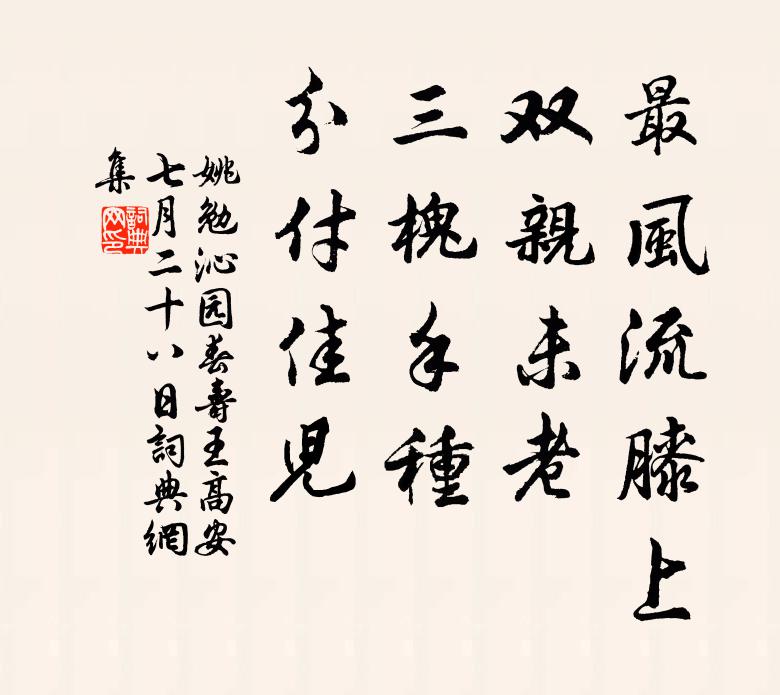 最風流膝上
双親未老
三槐手種
分付佳兒
姚勉沁园春壽王高安
七月二十八日詞典網
集
詞典
网印